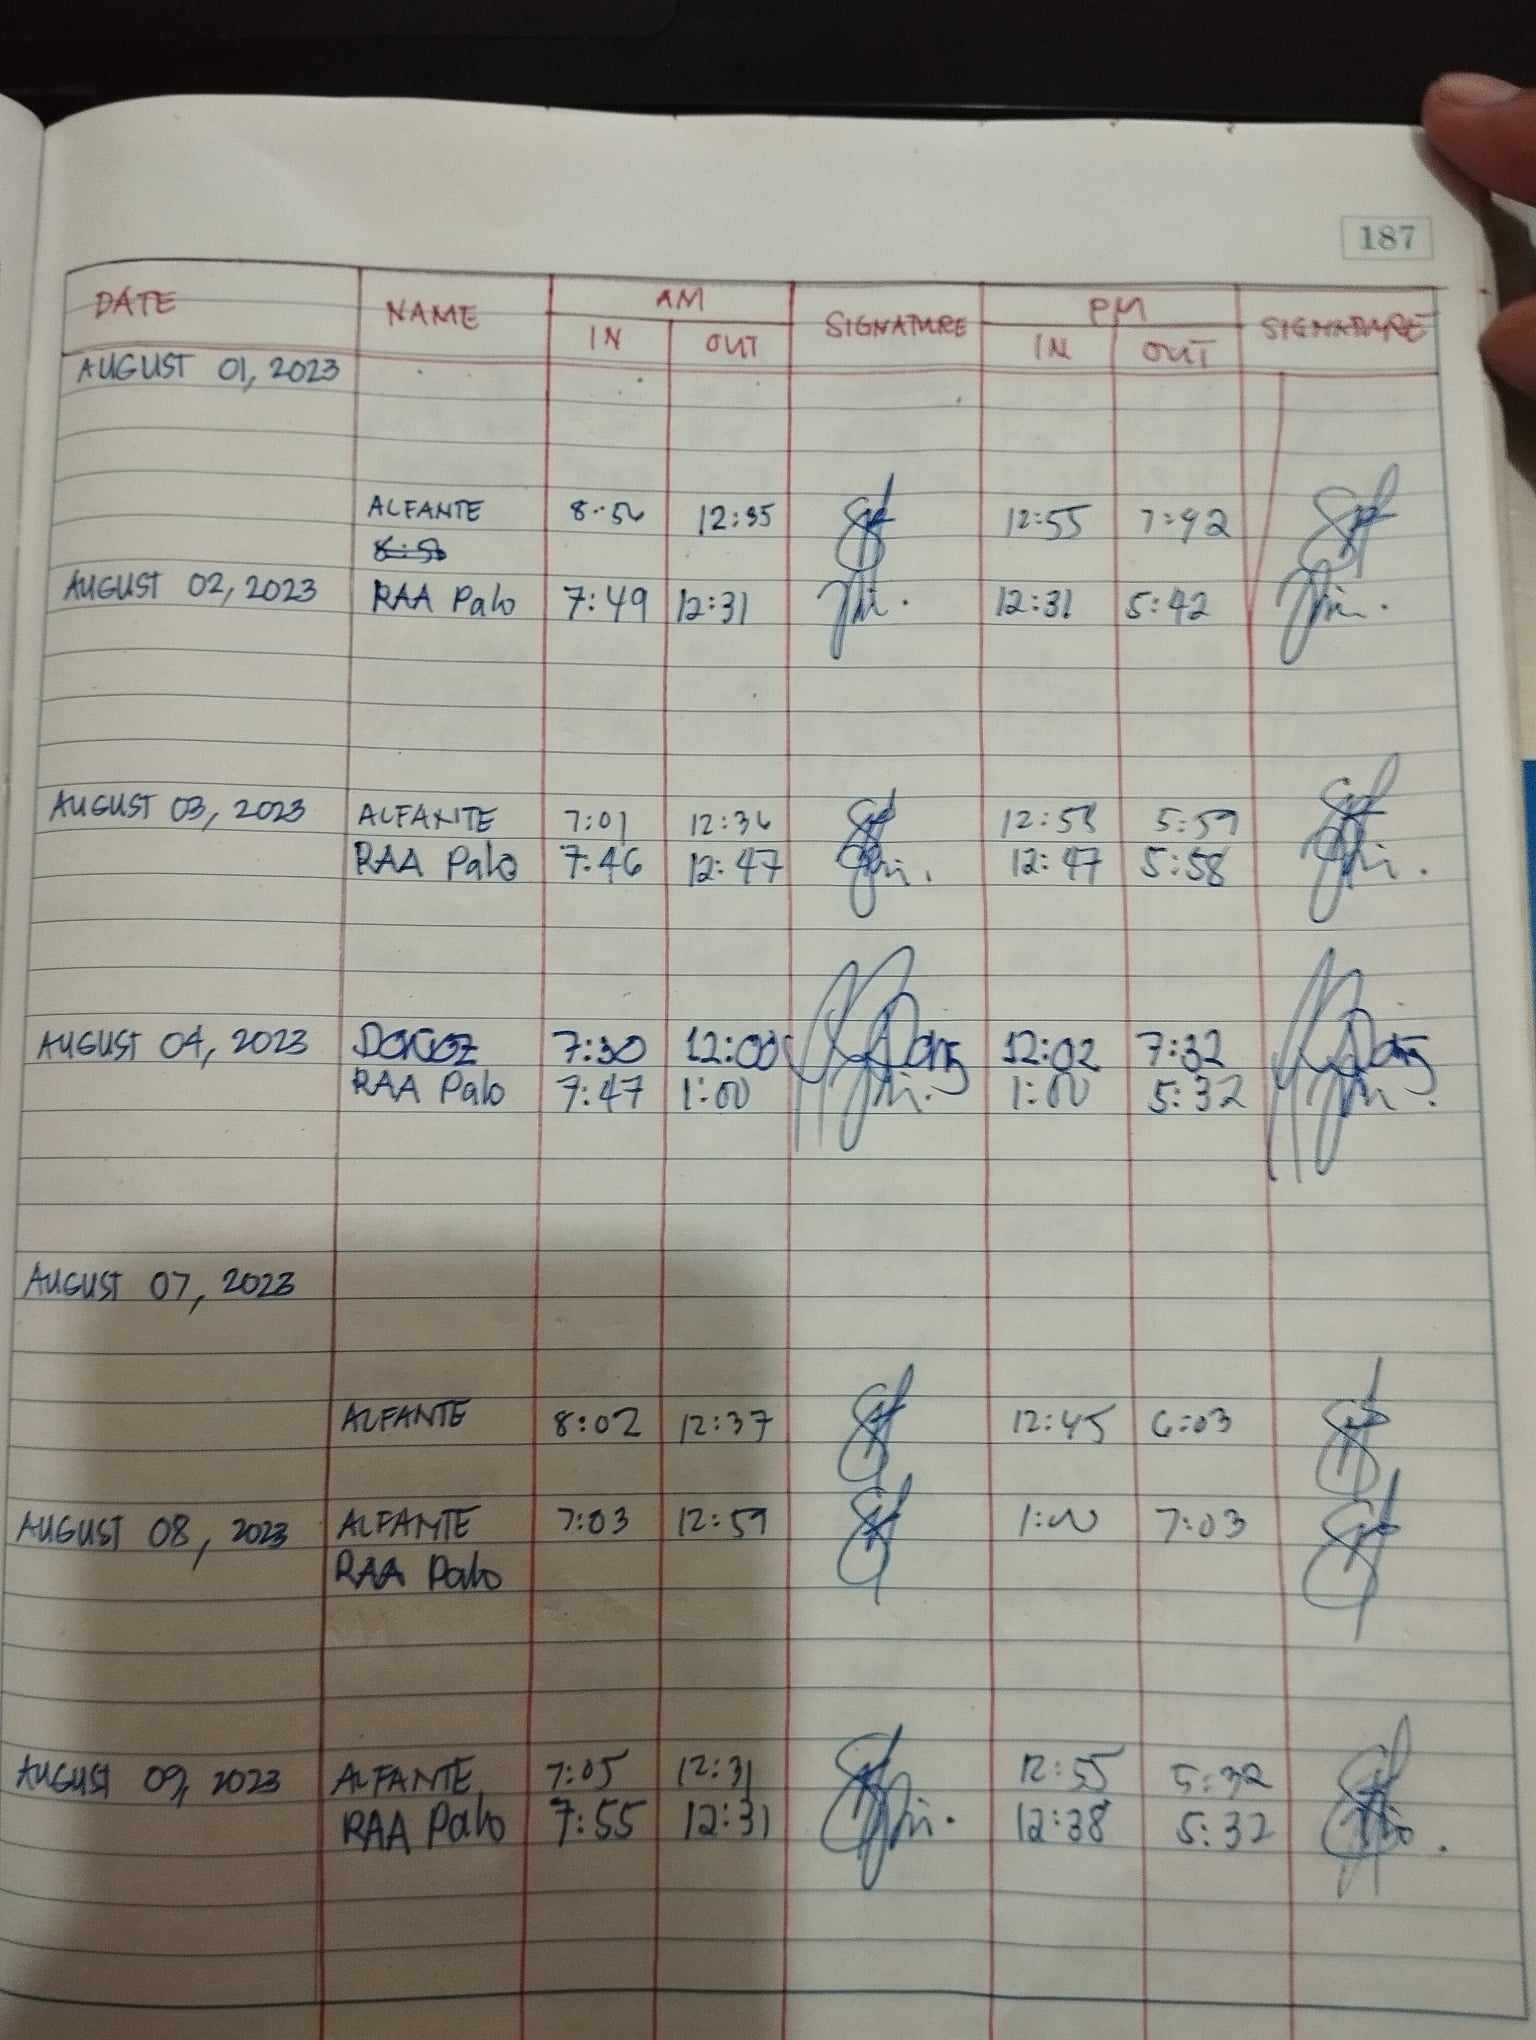 187
DATE NAME AM SIGNATURE PM SIGNATURE
IN OUT IN OUT
AUGUST 01, 2023
ALFANTE 12:35 12:55 7:42
AUGUST 02, 2023 RAA Palo 7:49 12:31 12:31 5:42
AUGUST 03, 2023 ALFANTE 7:01 12:36 12:58 5:59
RAA Palo 7:46 12:47 12:47 5:58
AUGUST 04, 2023 7:30 12:00 12:02 7:32
RAA Palo 7:47 1:00 1:00 5:32
AUGUST 07, 2023
ALFANTE 8:02 12:37 12:45 6:03
AUGUST 08, 2023 ALFANTE 7:03 12:59 1:00 7:03
RAA Palo
AUGUST 09, 2023 ALFANTE 7:05 12:31 12:55 5:32
RAA Palo 7:55 12:31 12:38 5:32